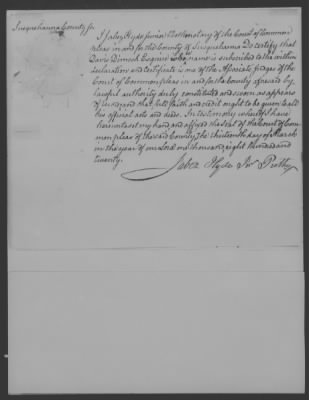 Susquehanna County ss
I Jabez Hyde Junior Prothonotary of the Court of Common
pleas in and for the County of Susquehanna Do certify that
Davis Dimock Esquire whose name is subscribed to the within
declaration and certificate is one of the Associate Judges of the
Court of Common pleas in and for the County aforesaid by
lawful authority duly constituted and sworn as appears
of record and that full faith and credit ought to be given to all
his official acts and deeds. In testimony whereof I have
hereunto set my hand and affixed the seal of the Court of Com-
mon pleas of the said County, the thirteenth day of March
in the year of our Lord one thousand eight Hundred and
twenty.
Jabez Hyde Jnr Prothy